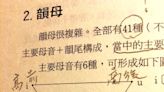 2. 韻母
韻母很複雜。全部有41種（
主要母音＋韻尾構成，當中的主要
主要母音有6種，可形成如下圖
高 前